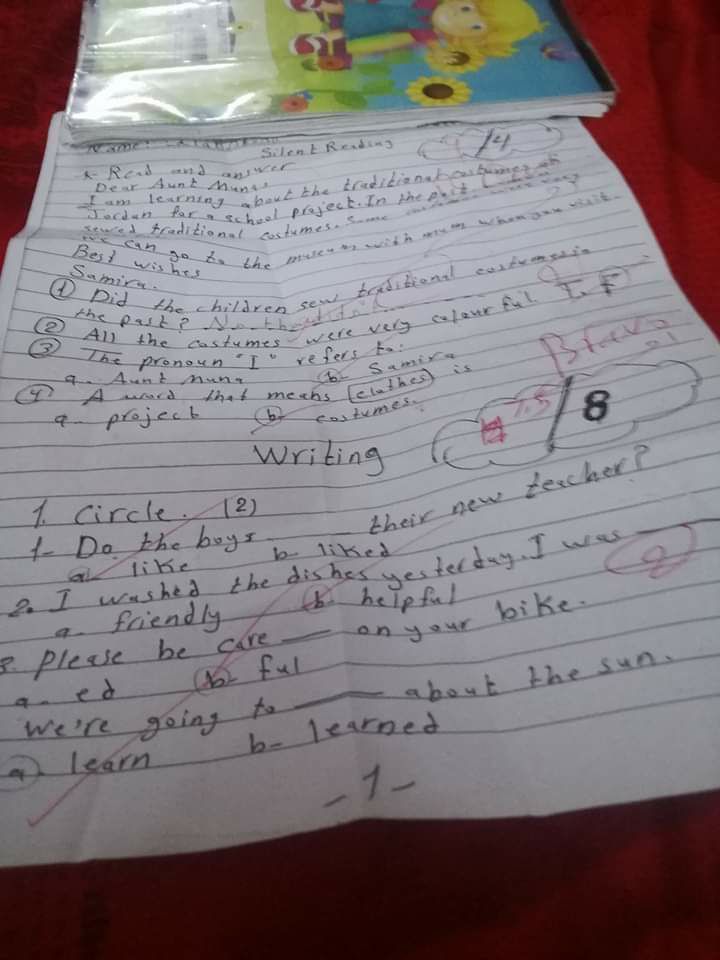 Name:
Silent Reading /4
* Read and answer
Dear Aunt Muna,
I am learning about the traditional costumes of
Jordan for a school project. In the past
sewed traditional costumes. Some costumes were very
We can go to the museum with mum when you visit.
Best wishes
Samira.
① Did the children sew traditional costumes in
the past? No, they
② All the costumes were very colourful T, F
③ The pronoun "I" refers to:
a- Aunt Muna b- Samira
④ A word that means (clothes) is
a- project b- costumes.
Bravo
7.5/8
Writing
1. Circle. (2)
1- Do the boys ___ their new teacher?
a- like b- liked
2. I washed the dishes yesterday. I was ___
a- friendly b- helpful
2
3. Please be care ___ on your bike.
a- ed b- ful
We're going to ___ about the sun.
a- learn b- learned
-1-